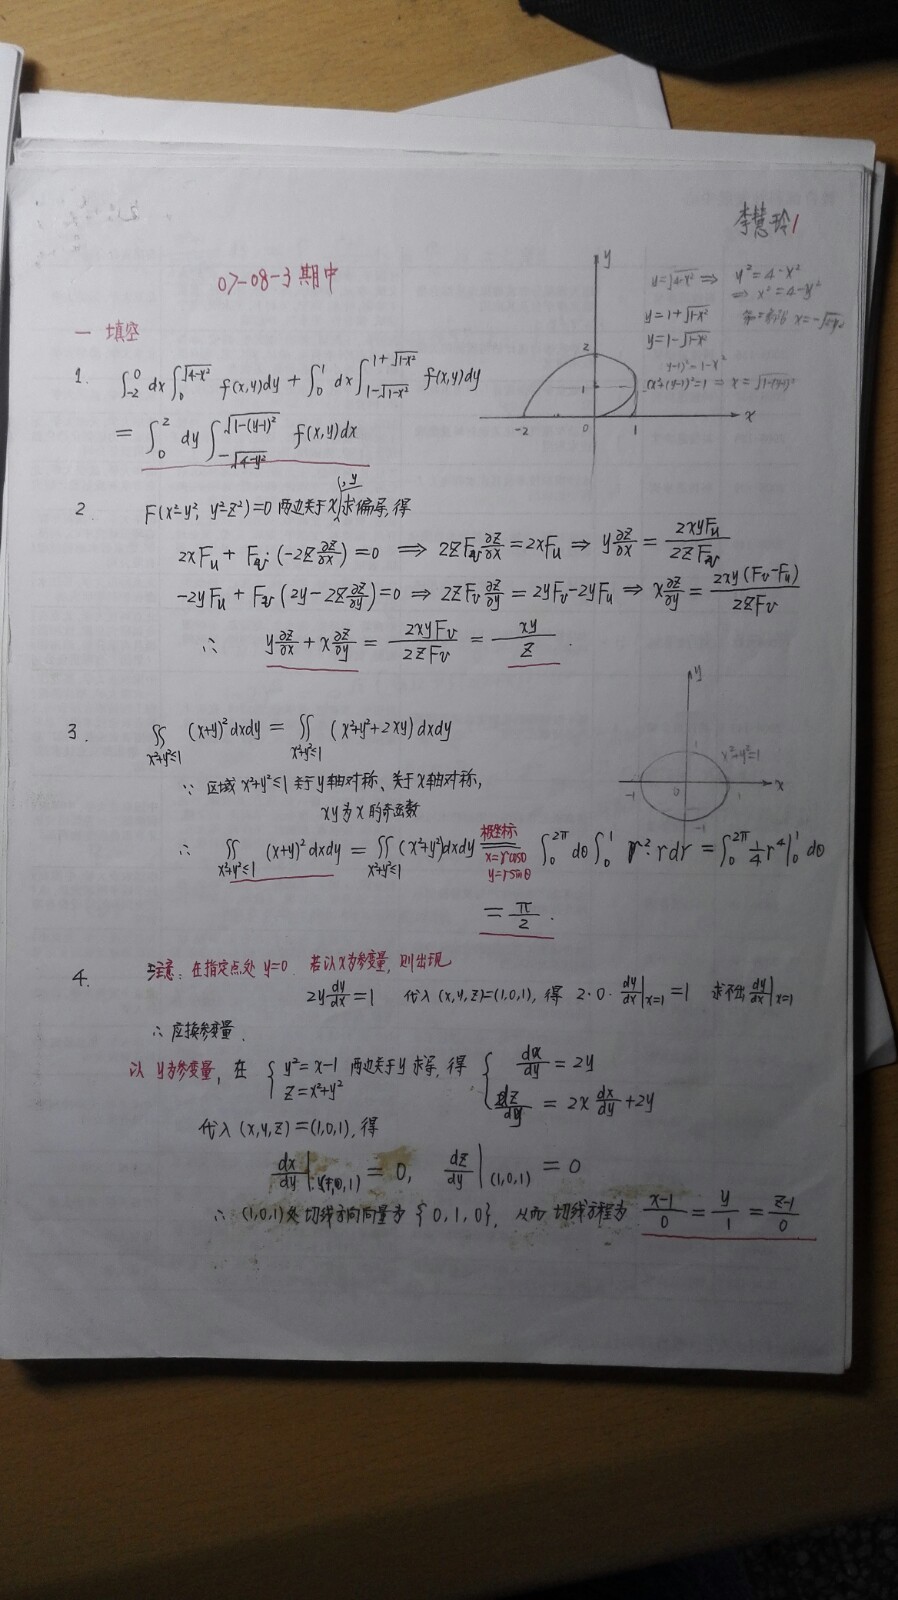 李慧玲1
07-08-3期中
一 填空
1. ∫_{-2}^{0} dx ∫_{0}^{√(4-x²)} f(x,y)dy + ∫_{0}^{1} dx ∫_{1-√(1-x²)}^{1+√(1-x²)} f(x,y)dy
= ∫_{0}^{2} dy ∫_{-√(4-y²)}^{√(1-(y-1)²)} f(x,y)dx
y
2
1
-2
0
1
x
y=√(4-x²) ⇒ y²=4-x²
⇒ x²=4-y²
y=1+√(1-x²)
x=-√(4-y²)
y=1-√(1-x²)
(y-1)²=1-x²
x²+(y-1)²=1 ⇒ x=√(1-(y-1)²)
2 F(x²-y², y²-z²)=0 两边关于x,y求偏导,得
2xF_u + F_v·(-2z ∂z/∂x)=0 ⇒ 2zF_v ∂z/∂x = 2xF_u ⇒ y ∂z/∂x = 2xyF_u / 2zF_v
-2yF_u + F_v(2y-2z ∂z/∂y)=0 ⇒ 2zF_v ∂z/∂y = 2yF_v-2yF_u ⇒ x ∂z/∂y = 2xy(F_v-F_u) / 2zF_v
∴ y ∂z/∂x + x ∂z/∂y = 2xyF_v / 2zF_v = xy / z .
3. ∬_{x²+y²≤1} (x+y)²dxdy = ∬_{x²+y²≤1} (x²+y²+2xy)dxdy
y
1
x²+y²=1
-1
0
1
x
-1
∵ 区域 x²+y²≤1 关于y轴对称、关于x轴对称,
xy为x的奇函数
∴ ∬_{x²+y²≤1} (x+y)²dxdy = ∬_{x²+y²≤1} (x²+y²)dxdy 极坐标 x=rcosθ y=rsinθ = ∫_{0}^{2π} dθ ∫_{0}^{1} r²·rdr = ∫_{0}^{2π} 1/4 r⁴|_{0}^{1} dθ
= π/2 .
4. 注意: 在指定点处 y=0. 若以x为参变量, 则出现
2y dy/dx = 1 代入 (x,y,z)=(1,0,1), 得 2·0·dy/dx|_{x=1} = 1 求不出 dy/dx|_{x=1}
∴ 应换参变量.
以y为参变量, 在 { y²=x-1 z=x²+y² 两边关于y求导, 得 { dx/dy = 2y dz/dy = 2x dx/dy + 2y
代入 (x,y,z)=(1,0,1), 得
dx/dy|_{(1,0,1)} = 0, dz/dy|_{(1,0,1)} = 0
∴ (1,0,1)处切线方向向量为 {0,1,0}, 从而 切线方程为 (x-1)/0 = y/1 = (z-1)/0